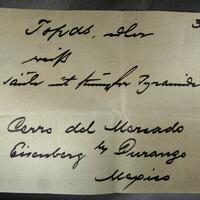 Topas, edler 3
weiß
Säule mit stumpfer Pyramide
Cerro del Mercado
Eisenberg by Durango
Mexico